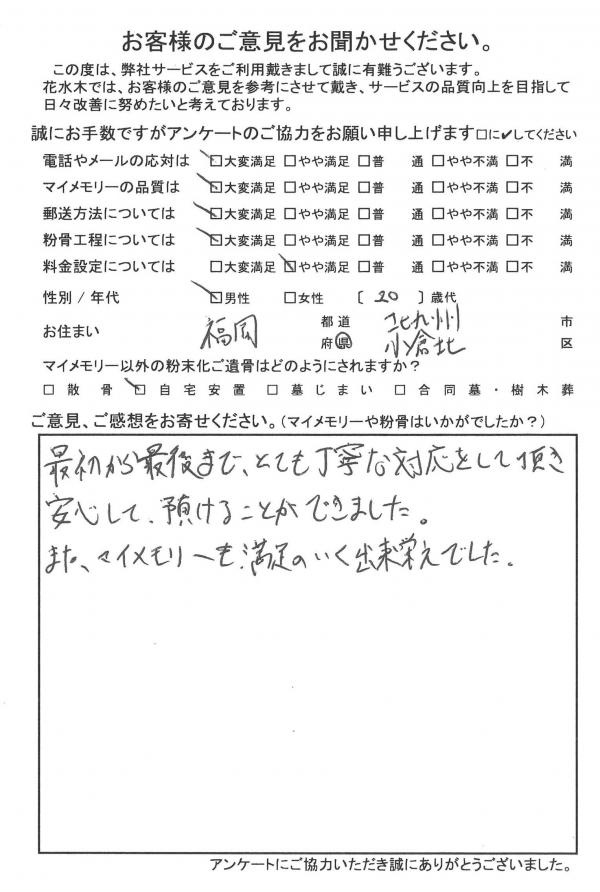 お客様のご意見をお聞かせください。
この度は、弊社サービスをご利用戴きまして誠に有難うございます。
花水木では、お客様のご意見を参考にさせて戴き、サービスの品質向上を目指して
日々改善に努めたいと考えております。
誠にお手数ですがアンケートのご協力をお願い申し上げます□に✔してください
電話やメールの応対は ☑大変満足 □やや満足 □普 通 □やや不満 □不 満
マイメモリーの品質は ☑大変満足 □やや満足 □普 通 □やや不満 □不 満
郵送方法については ☑大変満足 □やや満足 □普 通 □やや不満 □不 満
粉骨工程については ☑大変満足 □やや満足 □普 通 □やや不満 □不 満
料金設定については □大変満足 ☑やや満足 □普 通 □やや不満 □不 満
性別 / 年代 ☑男性 □女性 〔 20 〕歳代
お住まい 福岡 都 道 府 県 北九州 市 小倉北 区
マイメモリー以外の粉末化ご遺骨はどのようにされますか？
□ 散 骨 ☑ 自 宅 安 置 □ 墓 じ ま い □ 合 同 墓 ・ 樹 木 葬
ご意見、ご感想をお寄せください。（マイメモリーや粉骨はいかがでしたか？）
最初から最後まで、とても丁寧な対応をして頂き
安心して、預けることができました。
また、マイメモリーも満足のいく出来栄えでした。
アンケートにご協力いただき誠にありがとうございました。